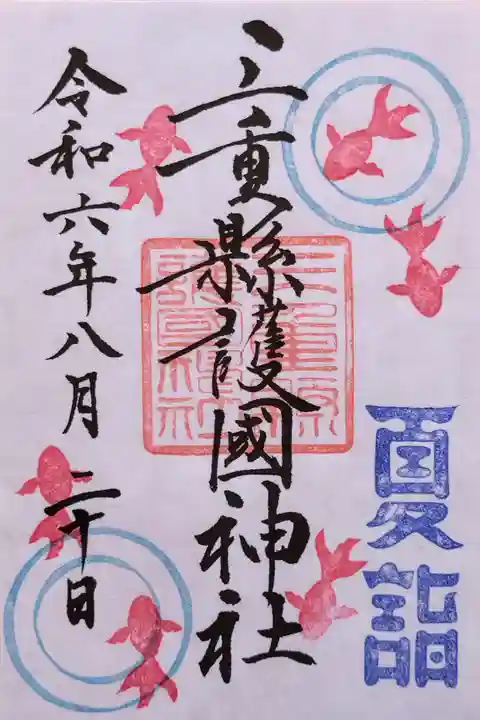 夏詣
三重縣護國神社
三重縣護國神社
令和六年八月二十日